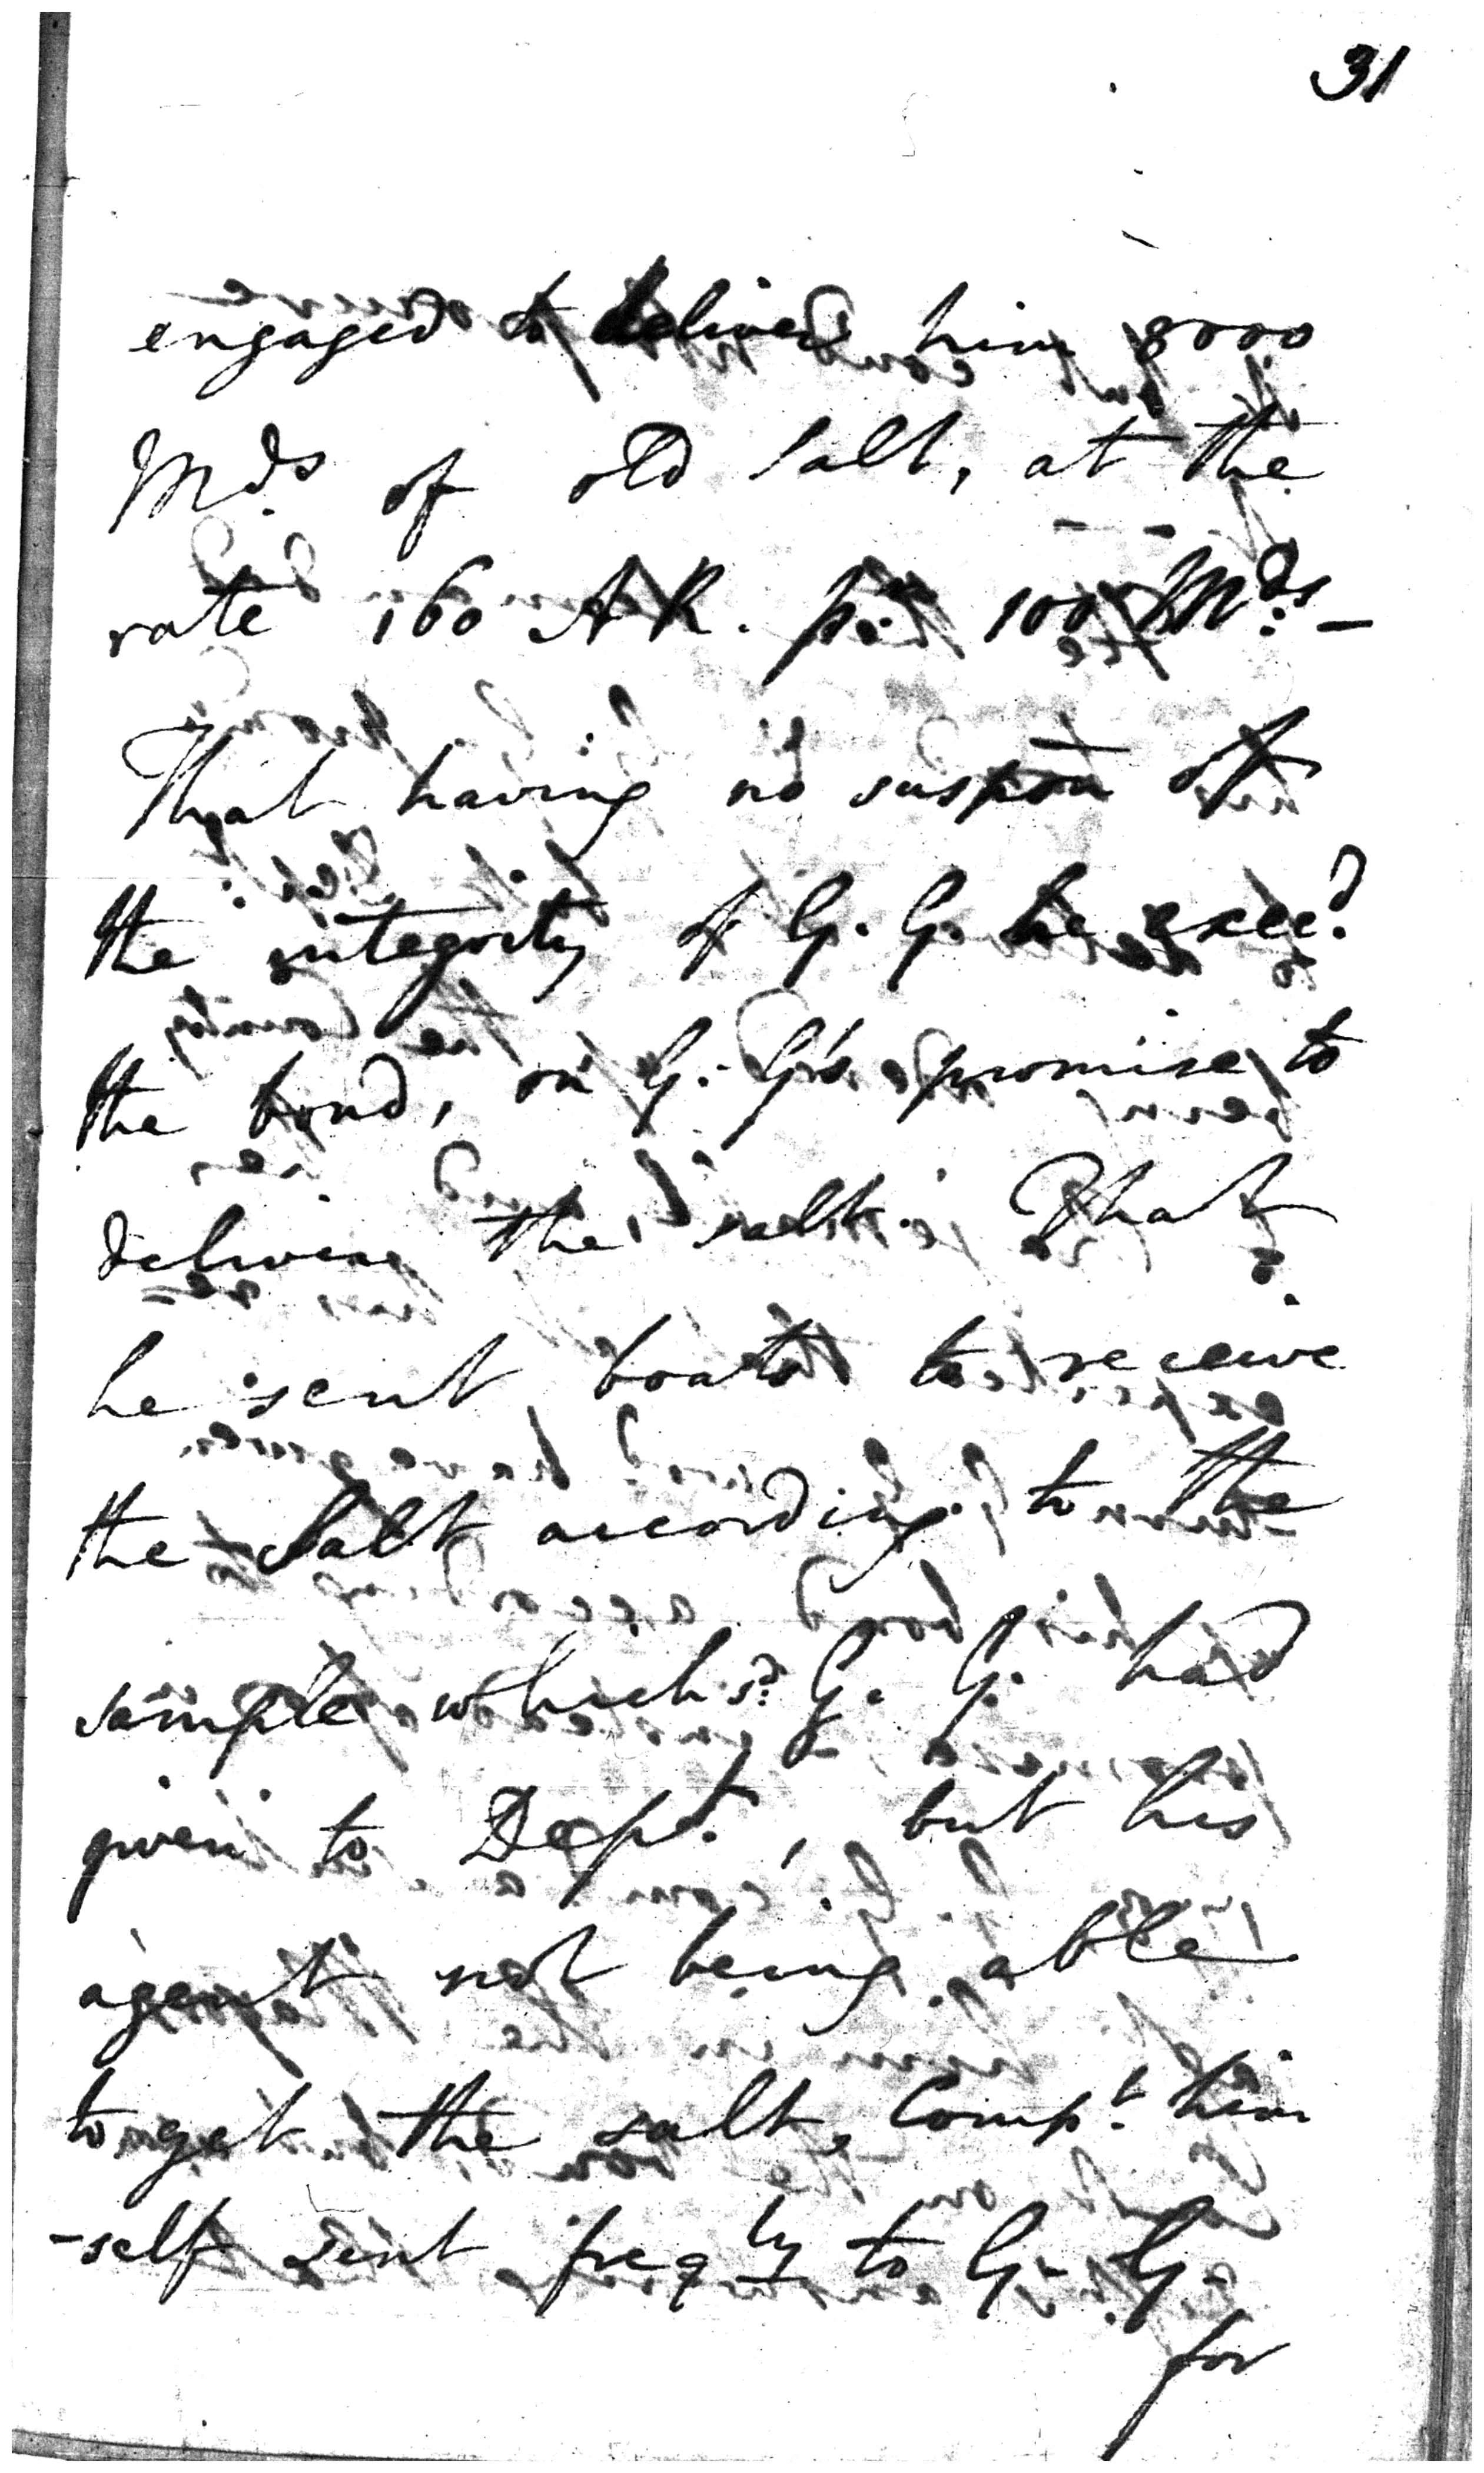 31
engaged to deliver him 8000
Mds. of old Salt, at the
rate 160 A R. pr. 100 Mds. -
That having no suspon of
the integrity of G. G. he exec.d
the bond, on G. G's promise to
delivery the salt. That
he sent boats to receive
the Salt according to the
sample which sd. G. G. had
given to Dept., but his
agent not being able
to get the salt, Compt. him
-self sent freqly to G. G.
for